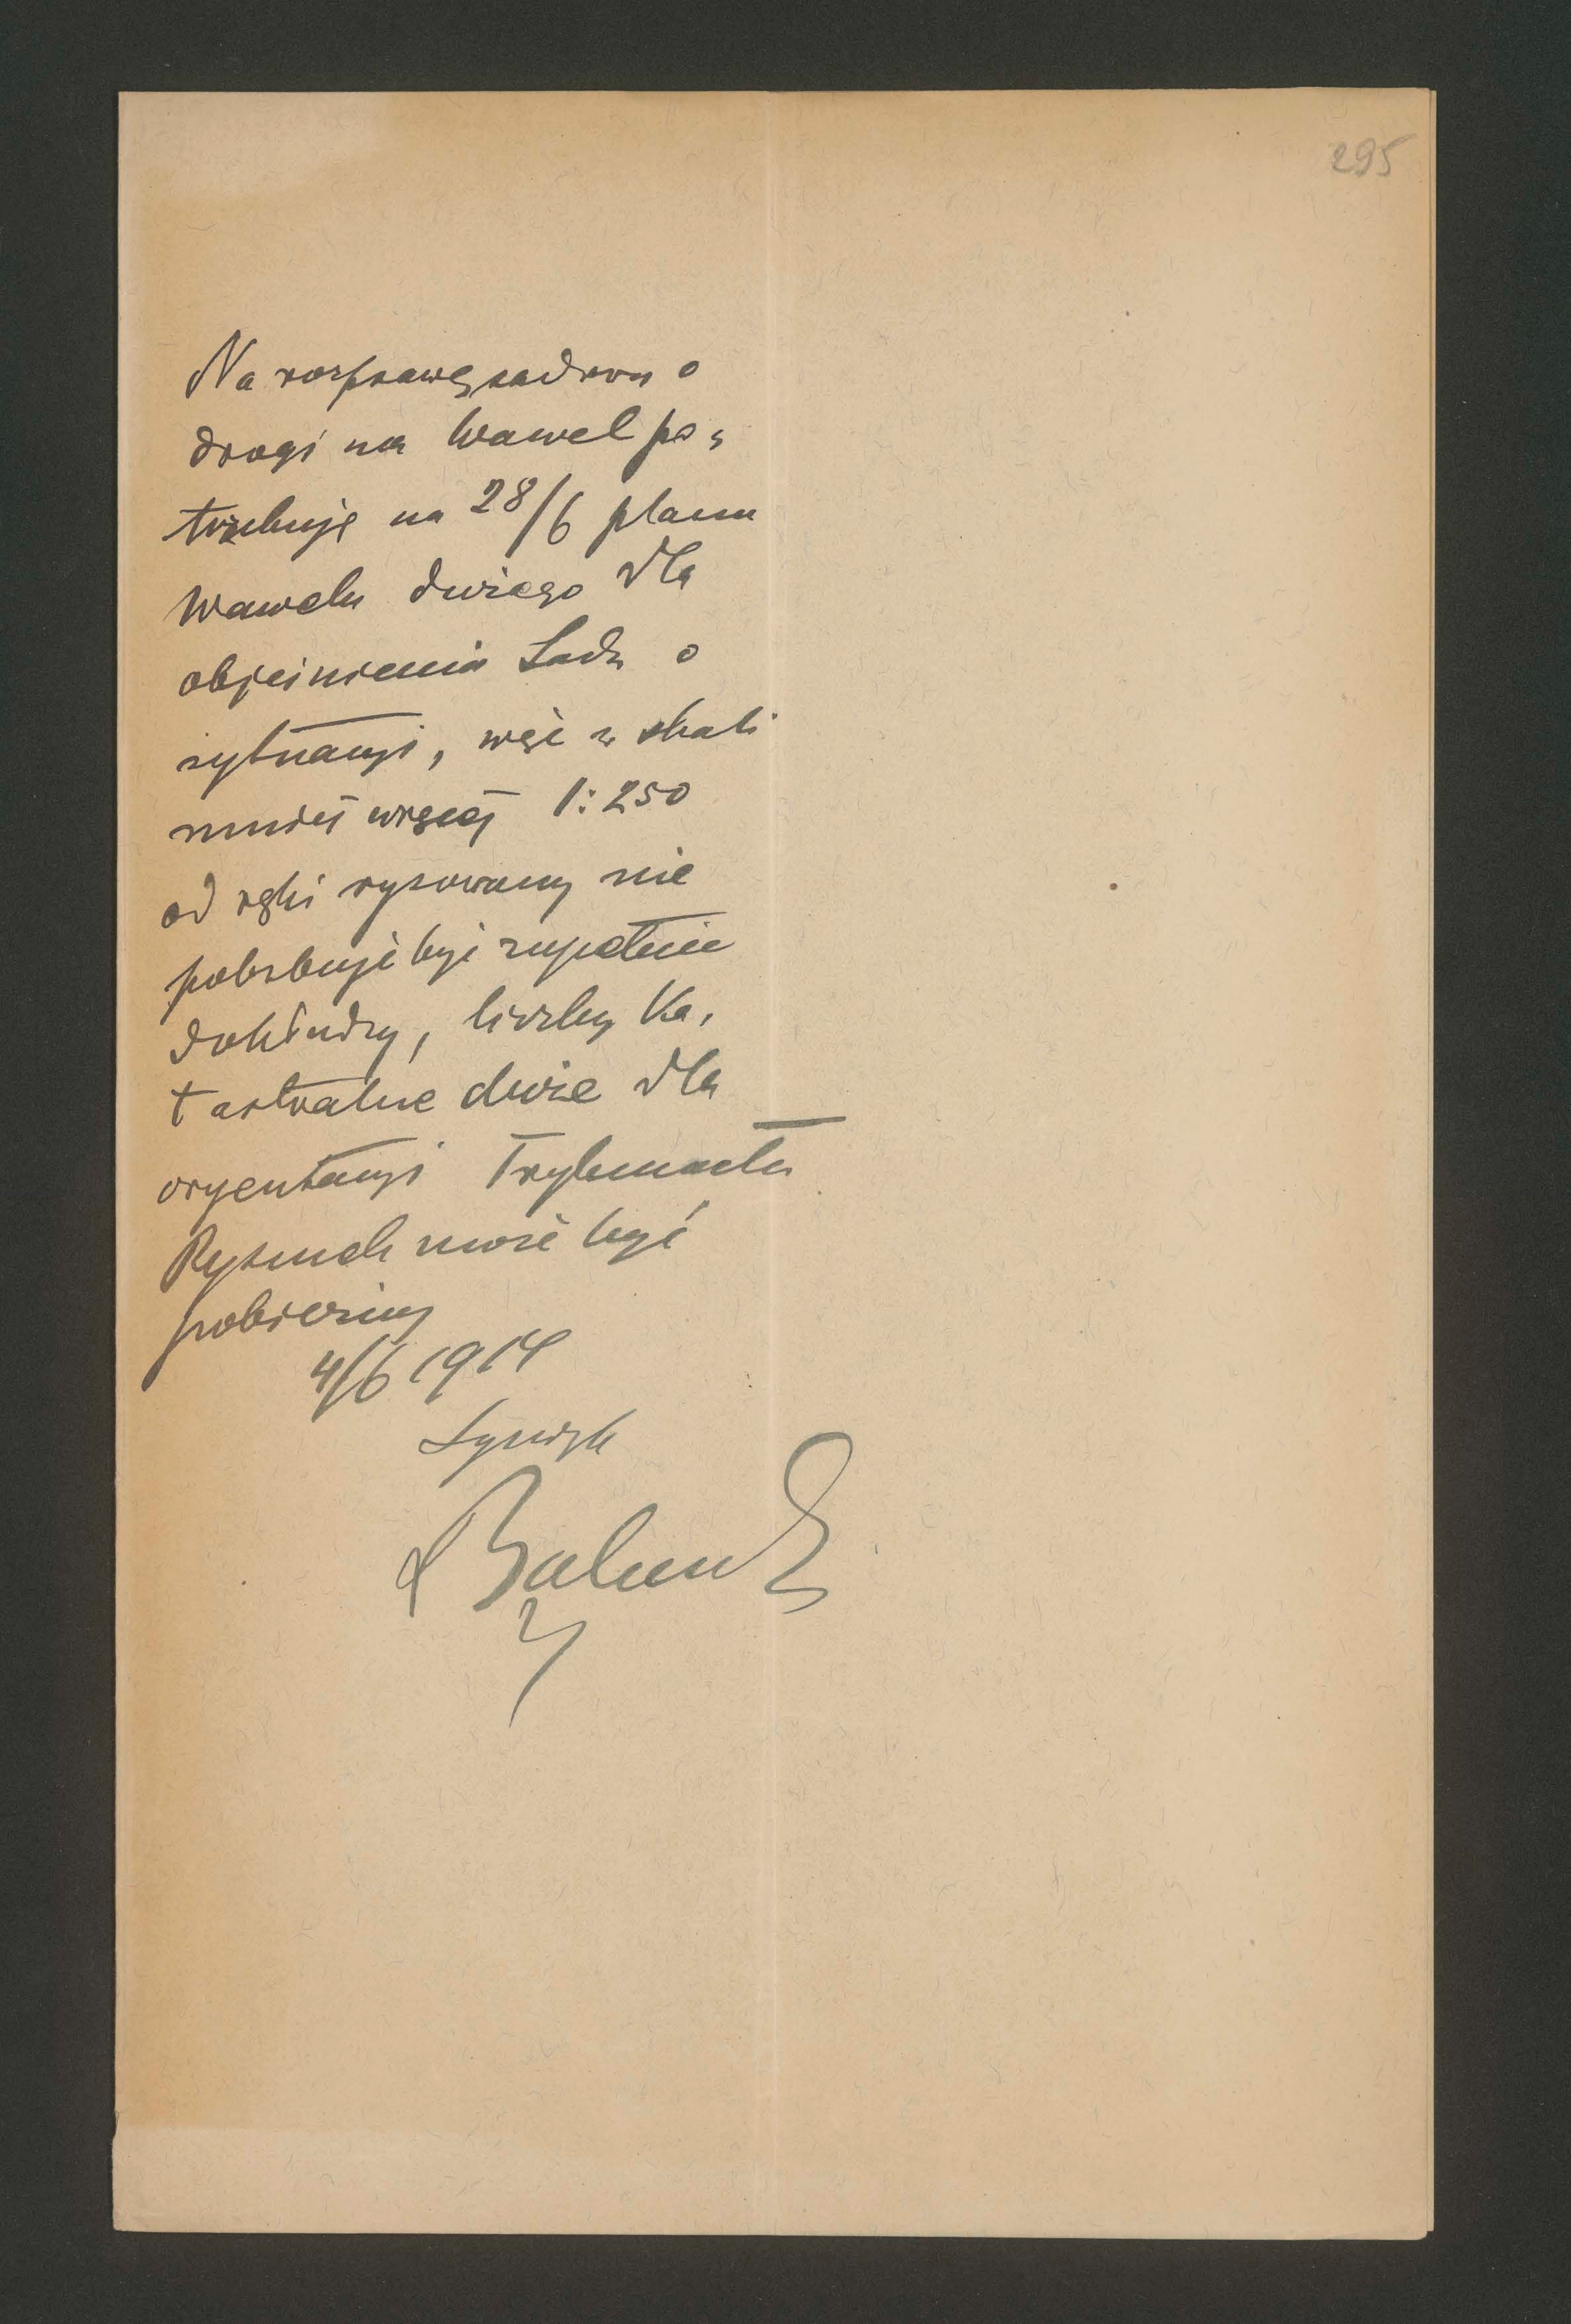 295
Na rozprawę sądową o
drogi na Wawel po,
trzebuję na 28/6 planu
Wawelu dużego dla
objaśnienia Sądu o
sytuacyi, więc w skali
mniej więcej 1:250
od ręki rysowany nie
potrzebuje być zupełnie
dokładny, liczby Ka,
tastralne duże dla
oryentacyi Trybunału
Rysunek może być
pobieżny
4/6 1914
Syndyk